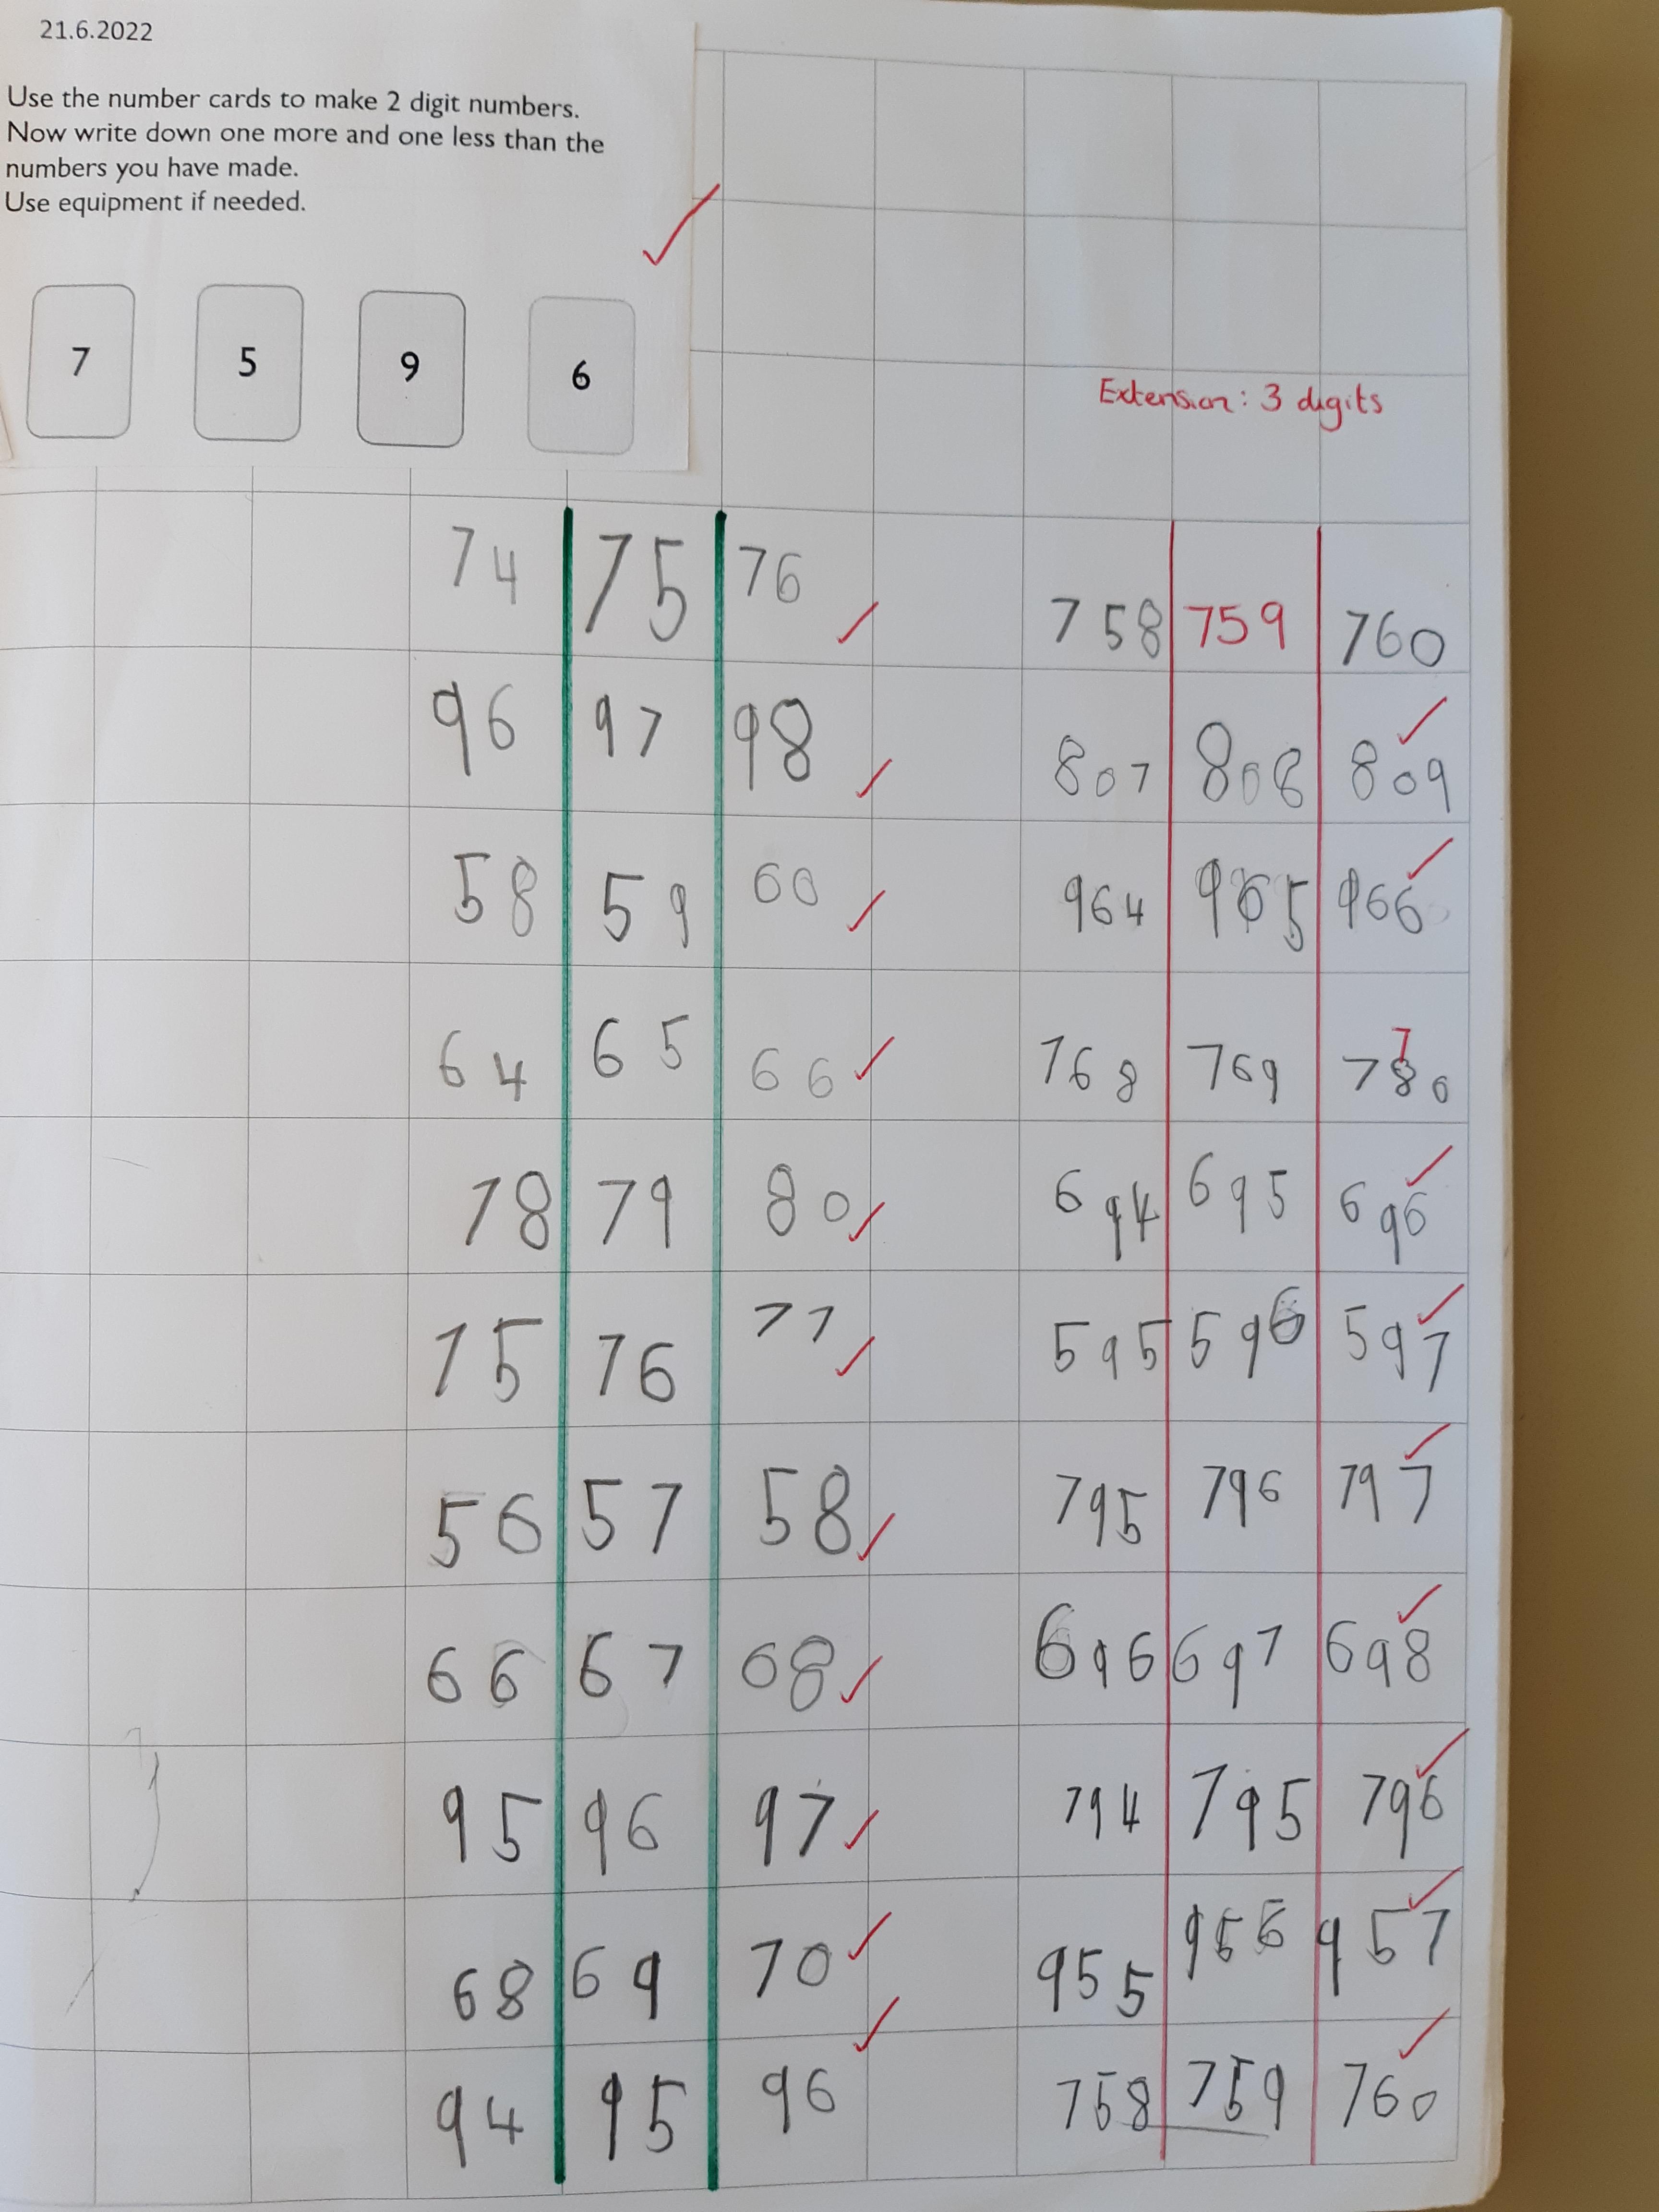 21.6.2022
Use the number cards to make 2 digit numbers.
Now write down one more and one less than the
numbers you have made.
Use equipment if needed.
7 5 9 6
Extension: 3 digits
74 75 76
758 759 760
96 97 98
807 808 809
58 59 60
964 965 966
64 65 66
768 769 780
7
78 79 80
694 695 696
75 76 77
595 596 597
56 57 58
795 796 797
66 67 68
696 697 698
95 96 97
794 795 796
68 69 70
955 956 957
94 95 96
758 759 760